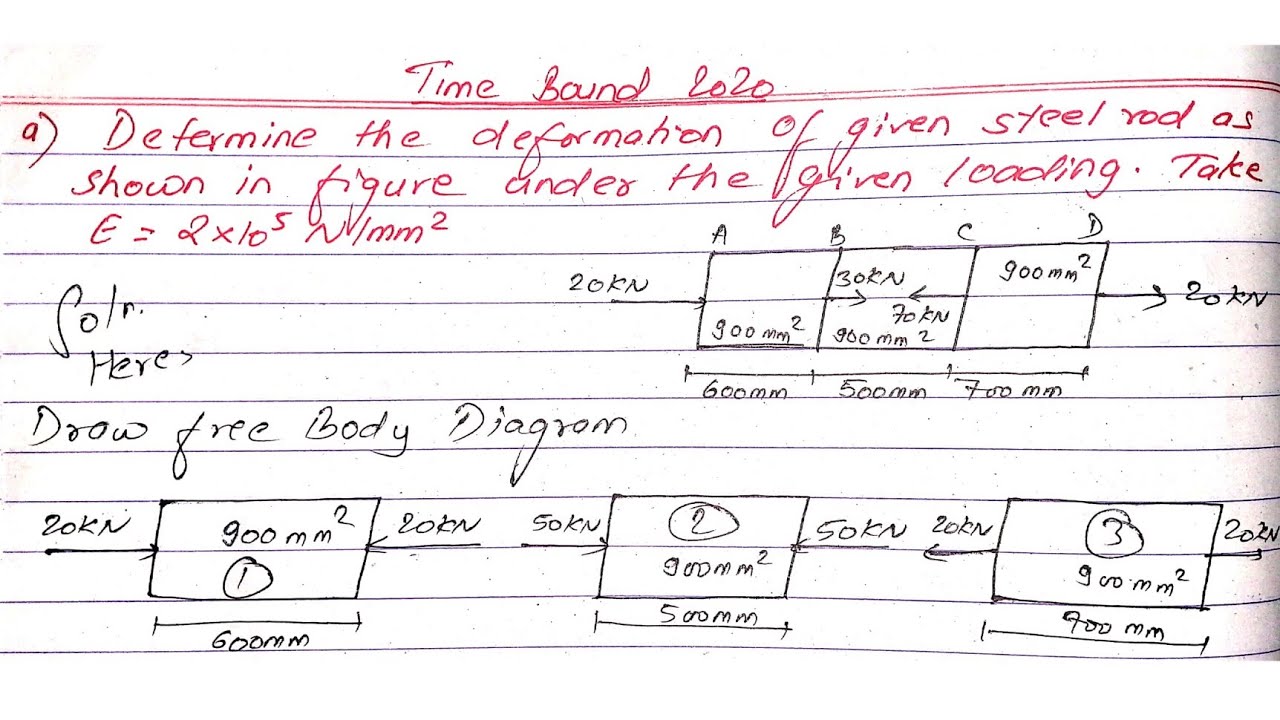 Time Bound 2020
a) Determine the deformation of given steel rod as
shown in figure under the given loading. Take
E = 2×10⁵ N/mm²
A B C D
20KN 30KN 900mm² 20KN
70KN
900mm² 900mm²
600mm 500mm 700mm
Soln.
Here,
Draw free Body Diagram
20KN 900mm² 20KN 50KN 2 50KN 20KN 3 20KN
1 900mm² 900mm²
600mm 500mm 700mm